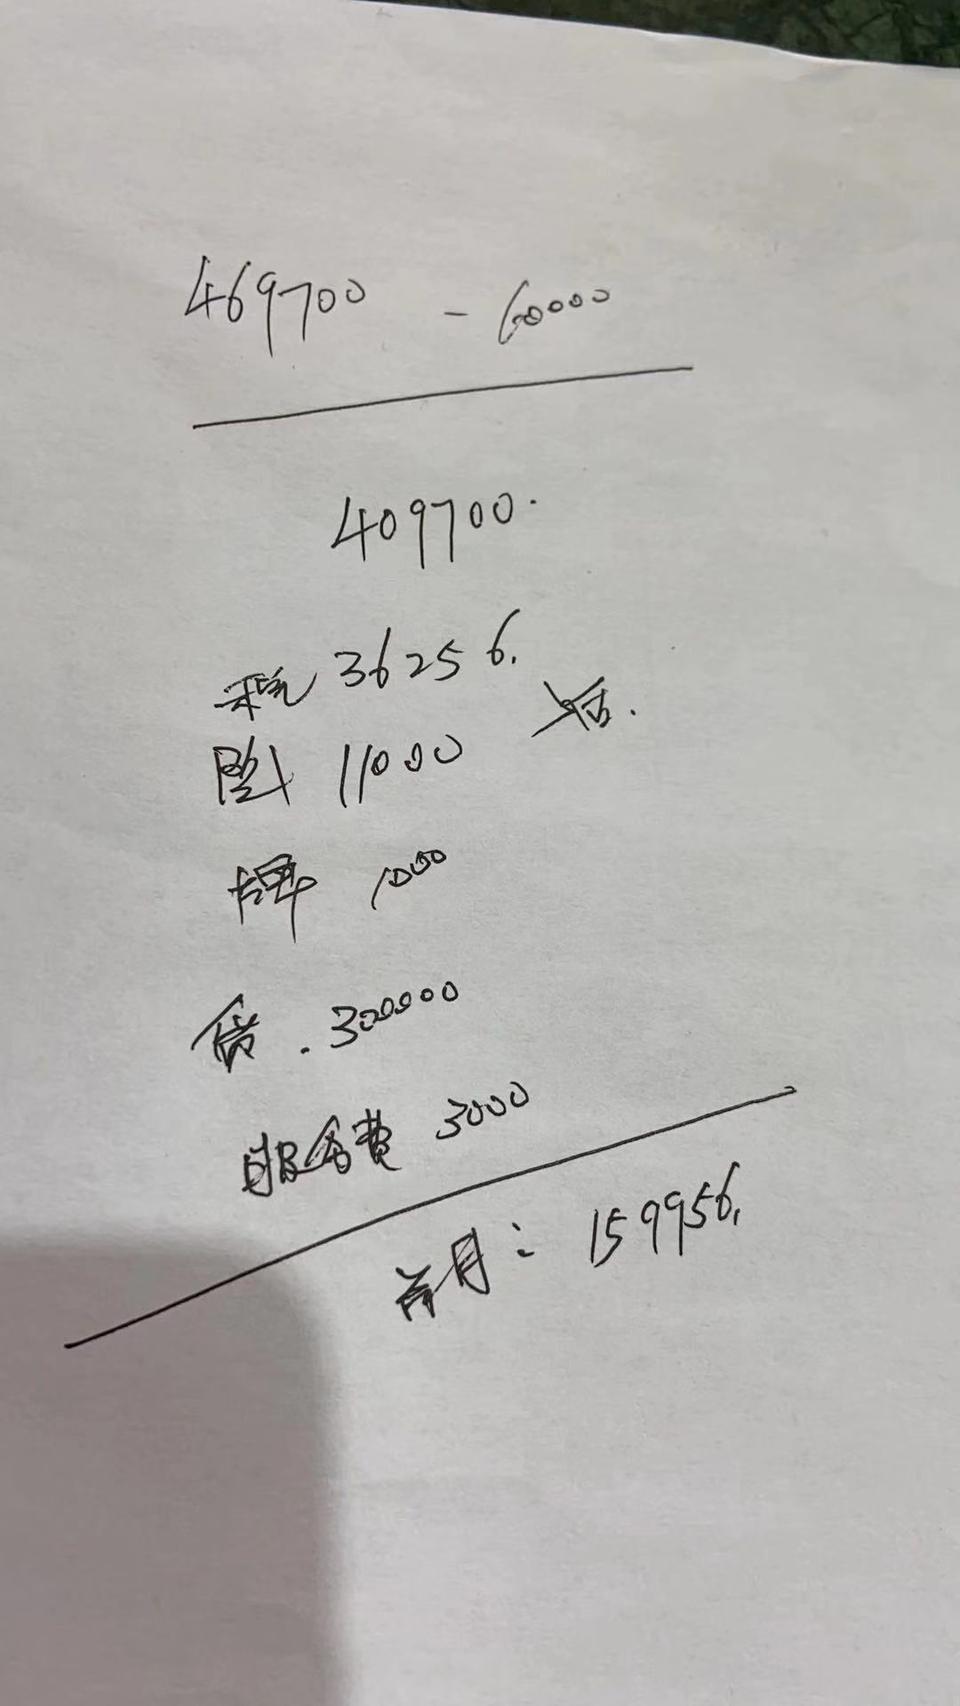 469700 - 60000
409700.
税 36256.
险 11000
牌 1000
贷.300000
服务费 3000
首月: 159956.